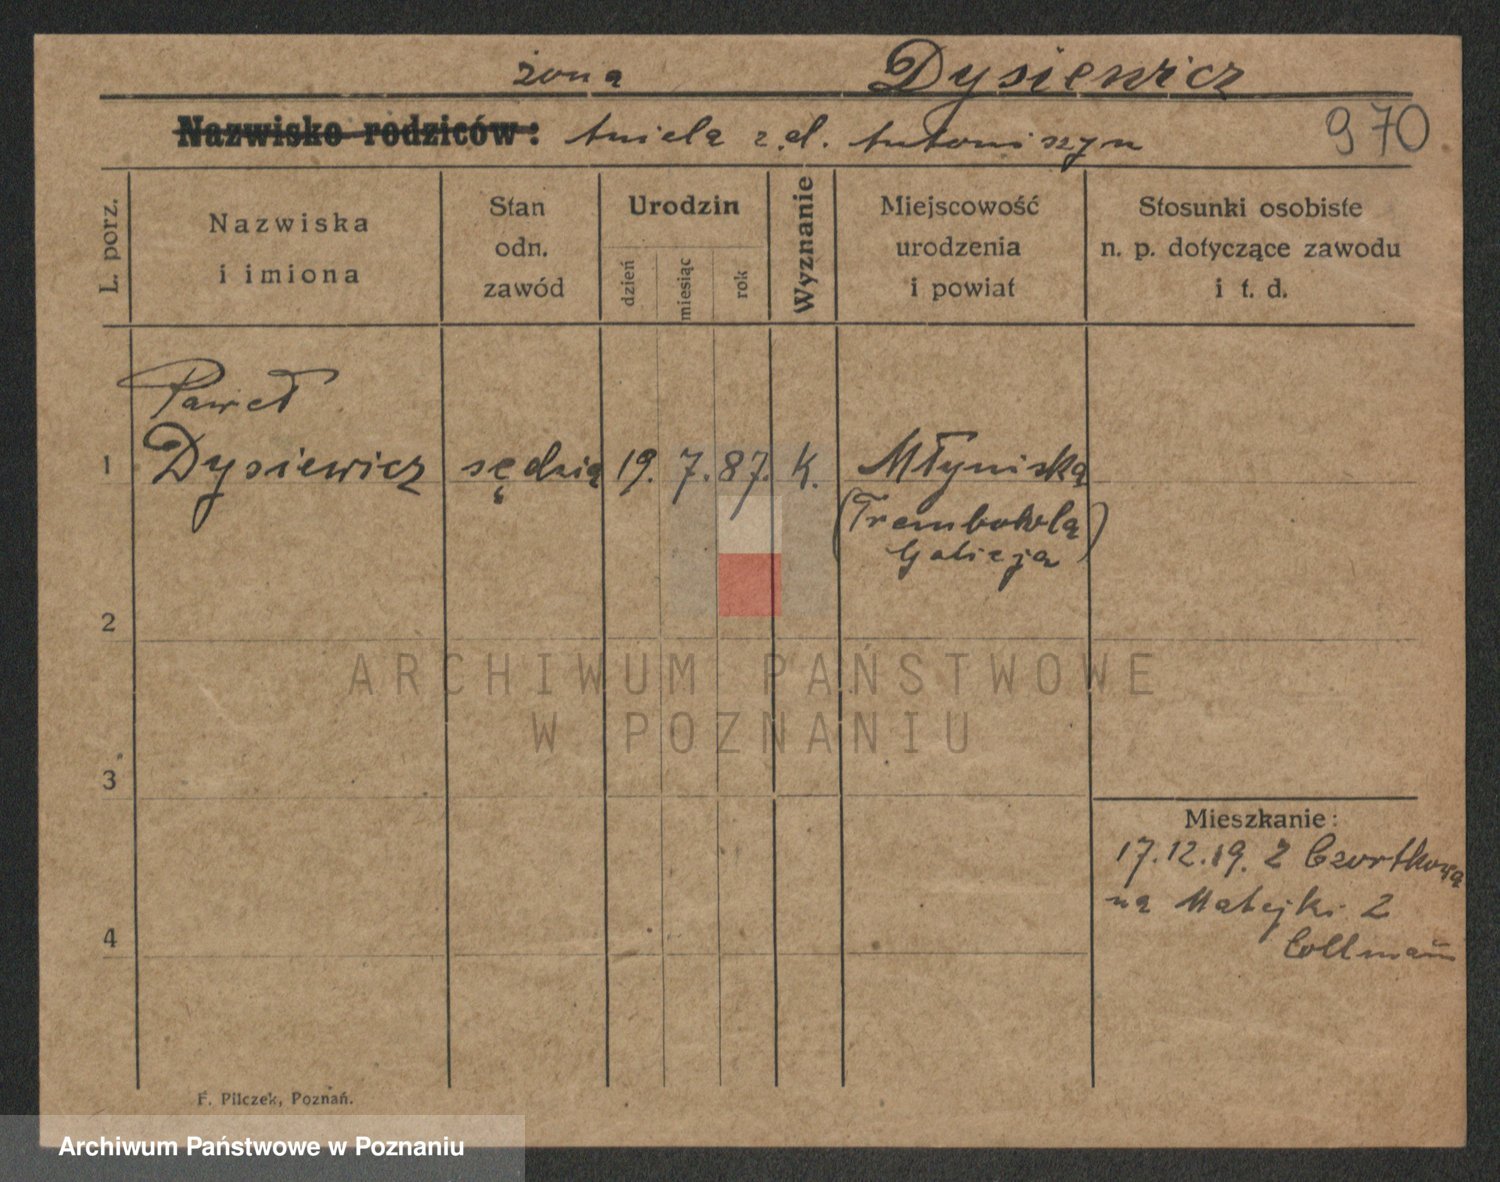 żona Dysiewicz
Nazwisko rodziców: Aniela z d. Antoniszyn 970
L. porz.
Nazwiska
i imiona
Stan
odn.
zawód
Urodzin
dzień
miesiąc
rok
Wyznanie
Miejscowość
urodzenia
i powiat
Stosunki osobiste
n. p. dotyczące zawodu
i t. d.
Paweł
1 Dysiewicz sędzia 19. 7. 87. K. Młyniska
(Trembowla)
Galicja
2
ARCHIWUM PAŃSTWOWE
W POZNANIU
3
Mieszkanie:
17.12.19. z Czortkowa
na Matejki 2
4
F. Pilczek, Poznań.
Archiwum Państwowe w Poznaniu